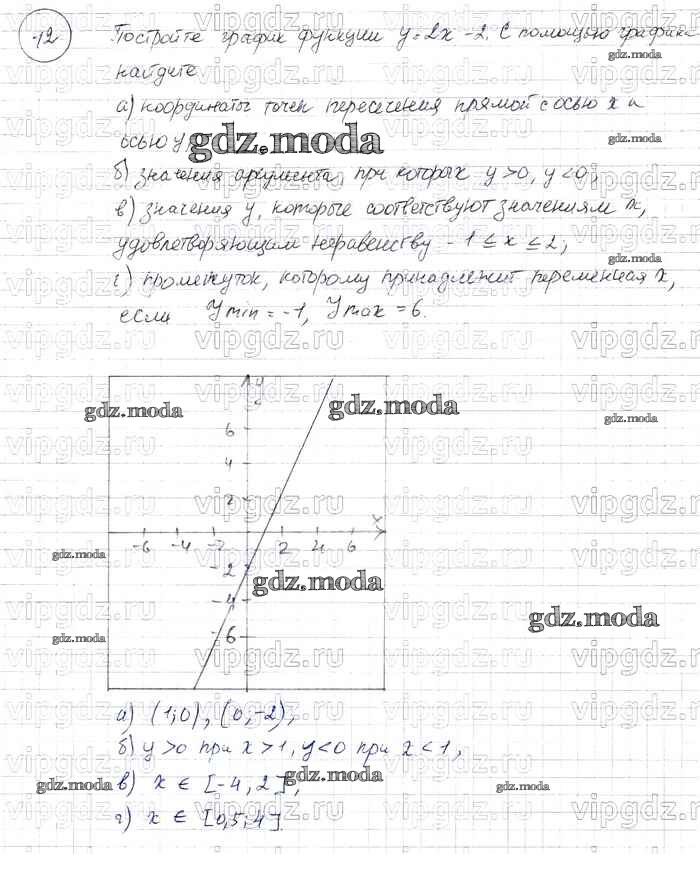 12
Постройте график функции y=2x-2. С помощью графика
найдите
а) координаты точек пересечения прямой с осью x и
осью y
б) значения аргумента, при которых y>0, y<0,
в) значения y, которые соответствуют значениям x,
удовлетворяющим неравенству -1 ≤ x ≤ 2,
г) промежуток, которому принадлежит переменная x,
если Ymin = -1, Ymax = 6.
gdz.moda
vipgdz.ru
y
6
4
2
x
-6 -4 -2 2 4 6
-2
-4
-6
а) (1;0), (0;-2),
б) y>0 при x>1, y<0 при x<1,
в) x ∈ [-4, 2],
г) x ∈ [0,5; 4].